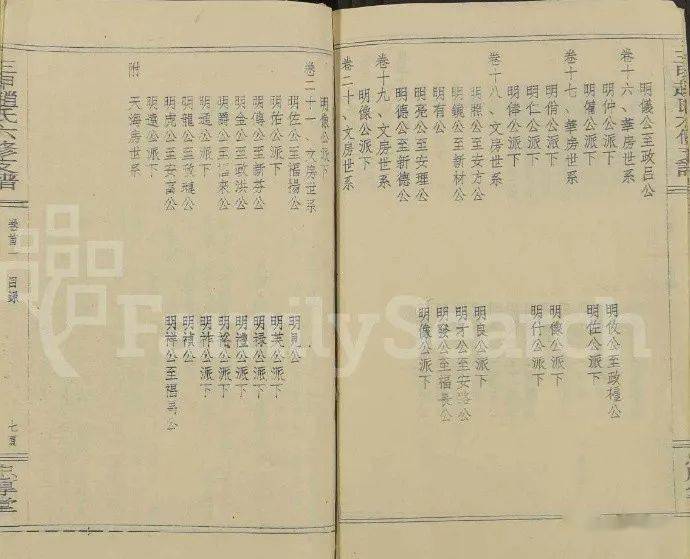 明儀公至政呂公
卷十六、華房世系
明仲公派下 明公至政穩公
明備公派下 明佐公派下
卷十七、華房世系
明偕公派下 明像公派下
明仁公派下 明什公派下
明俸公派下
卷十八、文房世系
明照公至安方公 明良公派下
明鏡公至新材公 明才公至安路公
明有公 明發公至福長公
明亮公至安理公 明像公派下
明德公至新德公
卷十九、文房世系
明像公派下
卷二十、文房世系
明像公派下
卷二十一、文房世系
明佐公至福揚公 明見公
明佑公派下 明英公派下
明傳公至新芬公 明祿公派下
明金公至政洪公 明禮公派下
明爵公至福來公 明裕公派下
明通公派下 明祚公派下
明龍公至政璉公 明禎公
明虎公至安富公 明祥公至福壽公
明遠公派下
天海房世系
附
三甲趙氏六修支譜
卷首一 目録
七頁
忠厚堂
FamilySearch